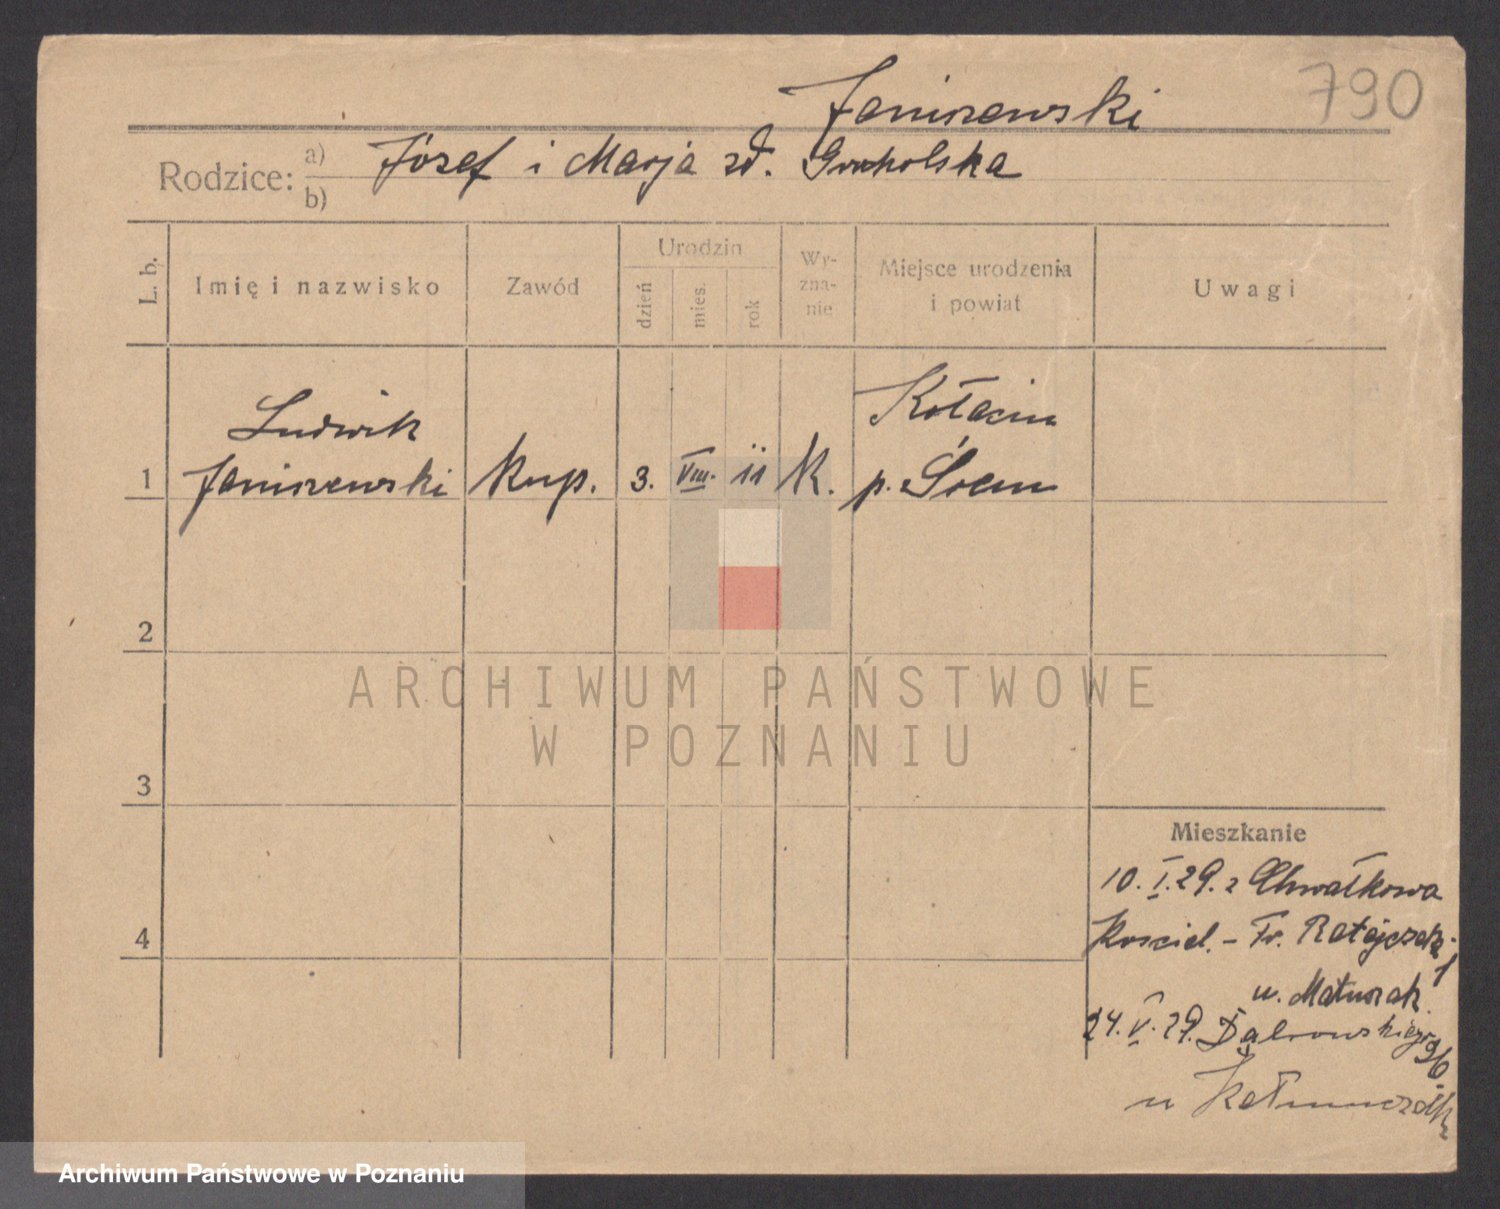 790
Janiszewski
Rodzice: a) Józef i Marja zd. Grocholska
b)
L. b. Imię i nazwisko Zawód Urodzin dzień mies. rok Wy-zna-nie Miejsce urodzenia i powiat Uwagi
Ludwik Kołacin
1 Janiszewski Kup. 3. VIII. 11 K. p. Śrem
2
ARCHIWUM PAŃSTWOWE
W POZNANIU
3
Mieszkanie
10. I. 29. z Chwałkowa
4 Kosciel. - Fr. Ratajczaka 1
u. Matuszak
24. V. 29. Dąbrowskiego 96.
u
Archiwum Państwowe w Poznaniu